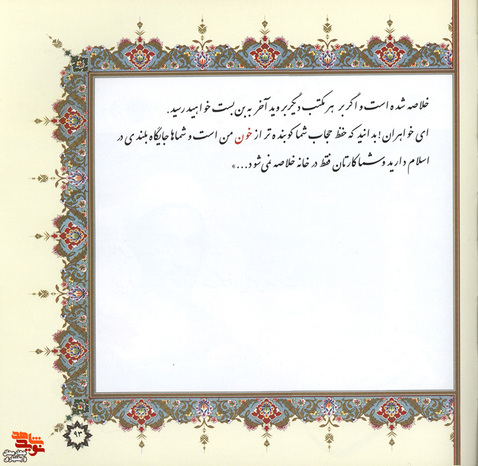 خلاصه شده است و اگر بر هر مکتب دیگر بروید آخر به بن بست خواهید رسید.
ای خواهران! بدانید که حفظ حجاب شما کوبنده تر از خون من است و شماها جایگاه بلندی در
اسلام دارید و شما کارتان فقط در خانه خلاصه نمی شود...»
۹۳
نوید شاهد